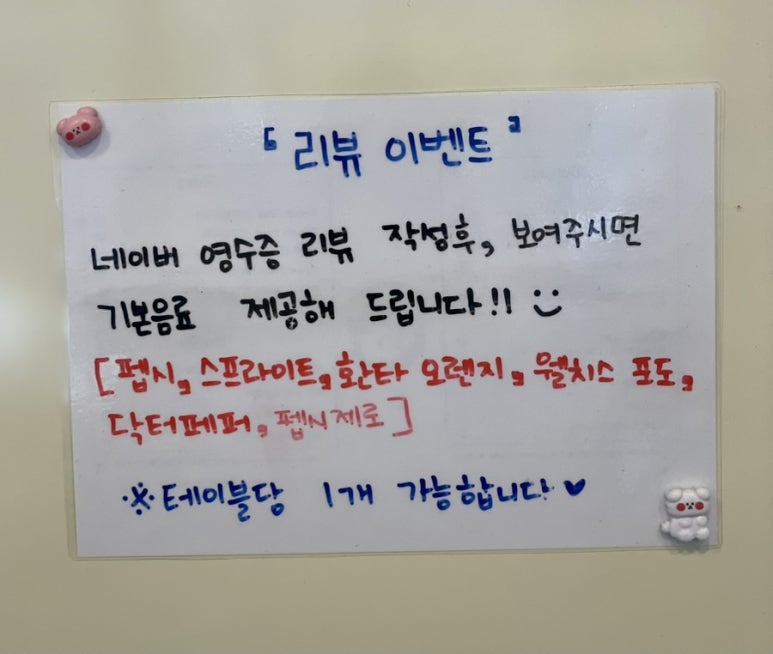 「리뷰 이벤트」
네이버 영수증 리뷰 작성후, 보여주시면
기본음료 제공해 드립니다!! :)
[펩시, 스프라이트, 환타 오렌지, 웰치스 포도,
닥터페퍼, 펩시제로]
※테이블당 1개 가능합니다♥